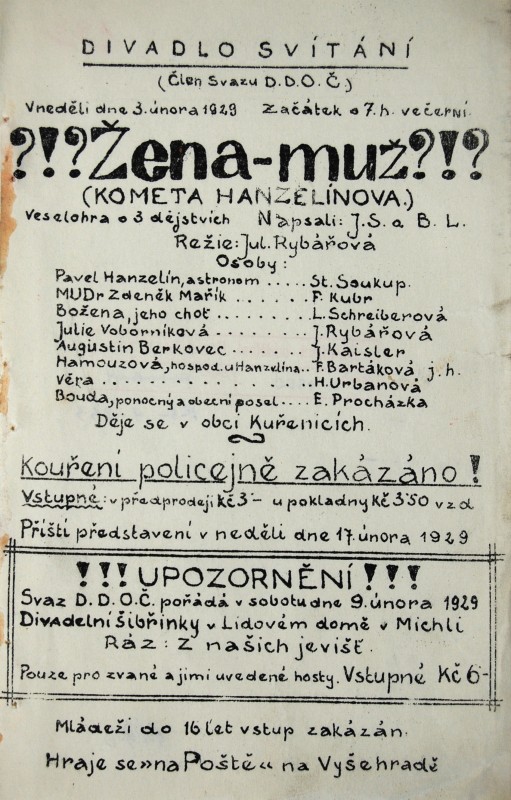 DIVADLO SVÍTÁNÍ
(Člen Svazu D.D.O.Č.)
V neděli dne 3. února 1929 Začátek o 7. h. večerní.
?!?Žena-muž?!?
(KOMETA HANZELÍNOVA.)
Veselohra o 3 dějstvích Napsali: J.S. a B. L.
Režie: Jul. Rybářová
Osoby:
Pavel Hanzelín, astronom ..... St. Soukup.
MUDr Zdeněk Mařík ...... F. Kubr
Božena, jeho choť ........ L. Schreiberová
Julie Voborníková ....... J. Rybářová
Augustin Berkovec ...... J. Kaisler
Hamouzová, hospod. u Hanzelína.. F. Bartáková j. h.
Věra .............. H. Urbanová
Bouda, ponocný a obecní posel .... E. Procházka
Děje se v obci Kuřenicích.
Kouření policejně zakázáno!
Vstupné: v předprodeji Kč 3- u pokladny Kč 3.50 v z d
Příští představení v neděli dne 17. února 1929
!!! UPOZORNĚNÍ !!!
Svaz D. D. O. Č. pořádá v sobotu dne 9. února 1929
Divadelní šibřinky v Lidovém domě v Michli
Ráz: Z našich jevišť.
Pouze pro zvané a jimi uvedené hosty. Vstupné Kč 6-
Mládeži do 16 let vstup zakázán.
Hraje se »na Poště« na Vyšehradě